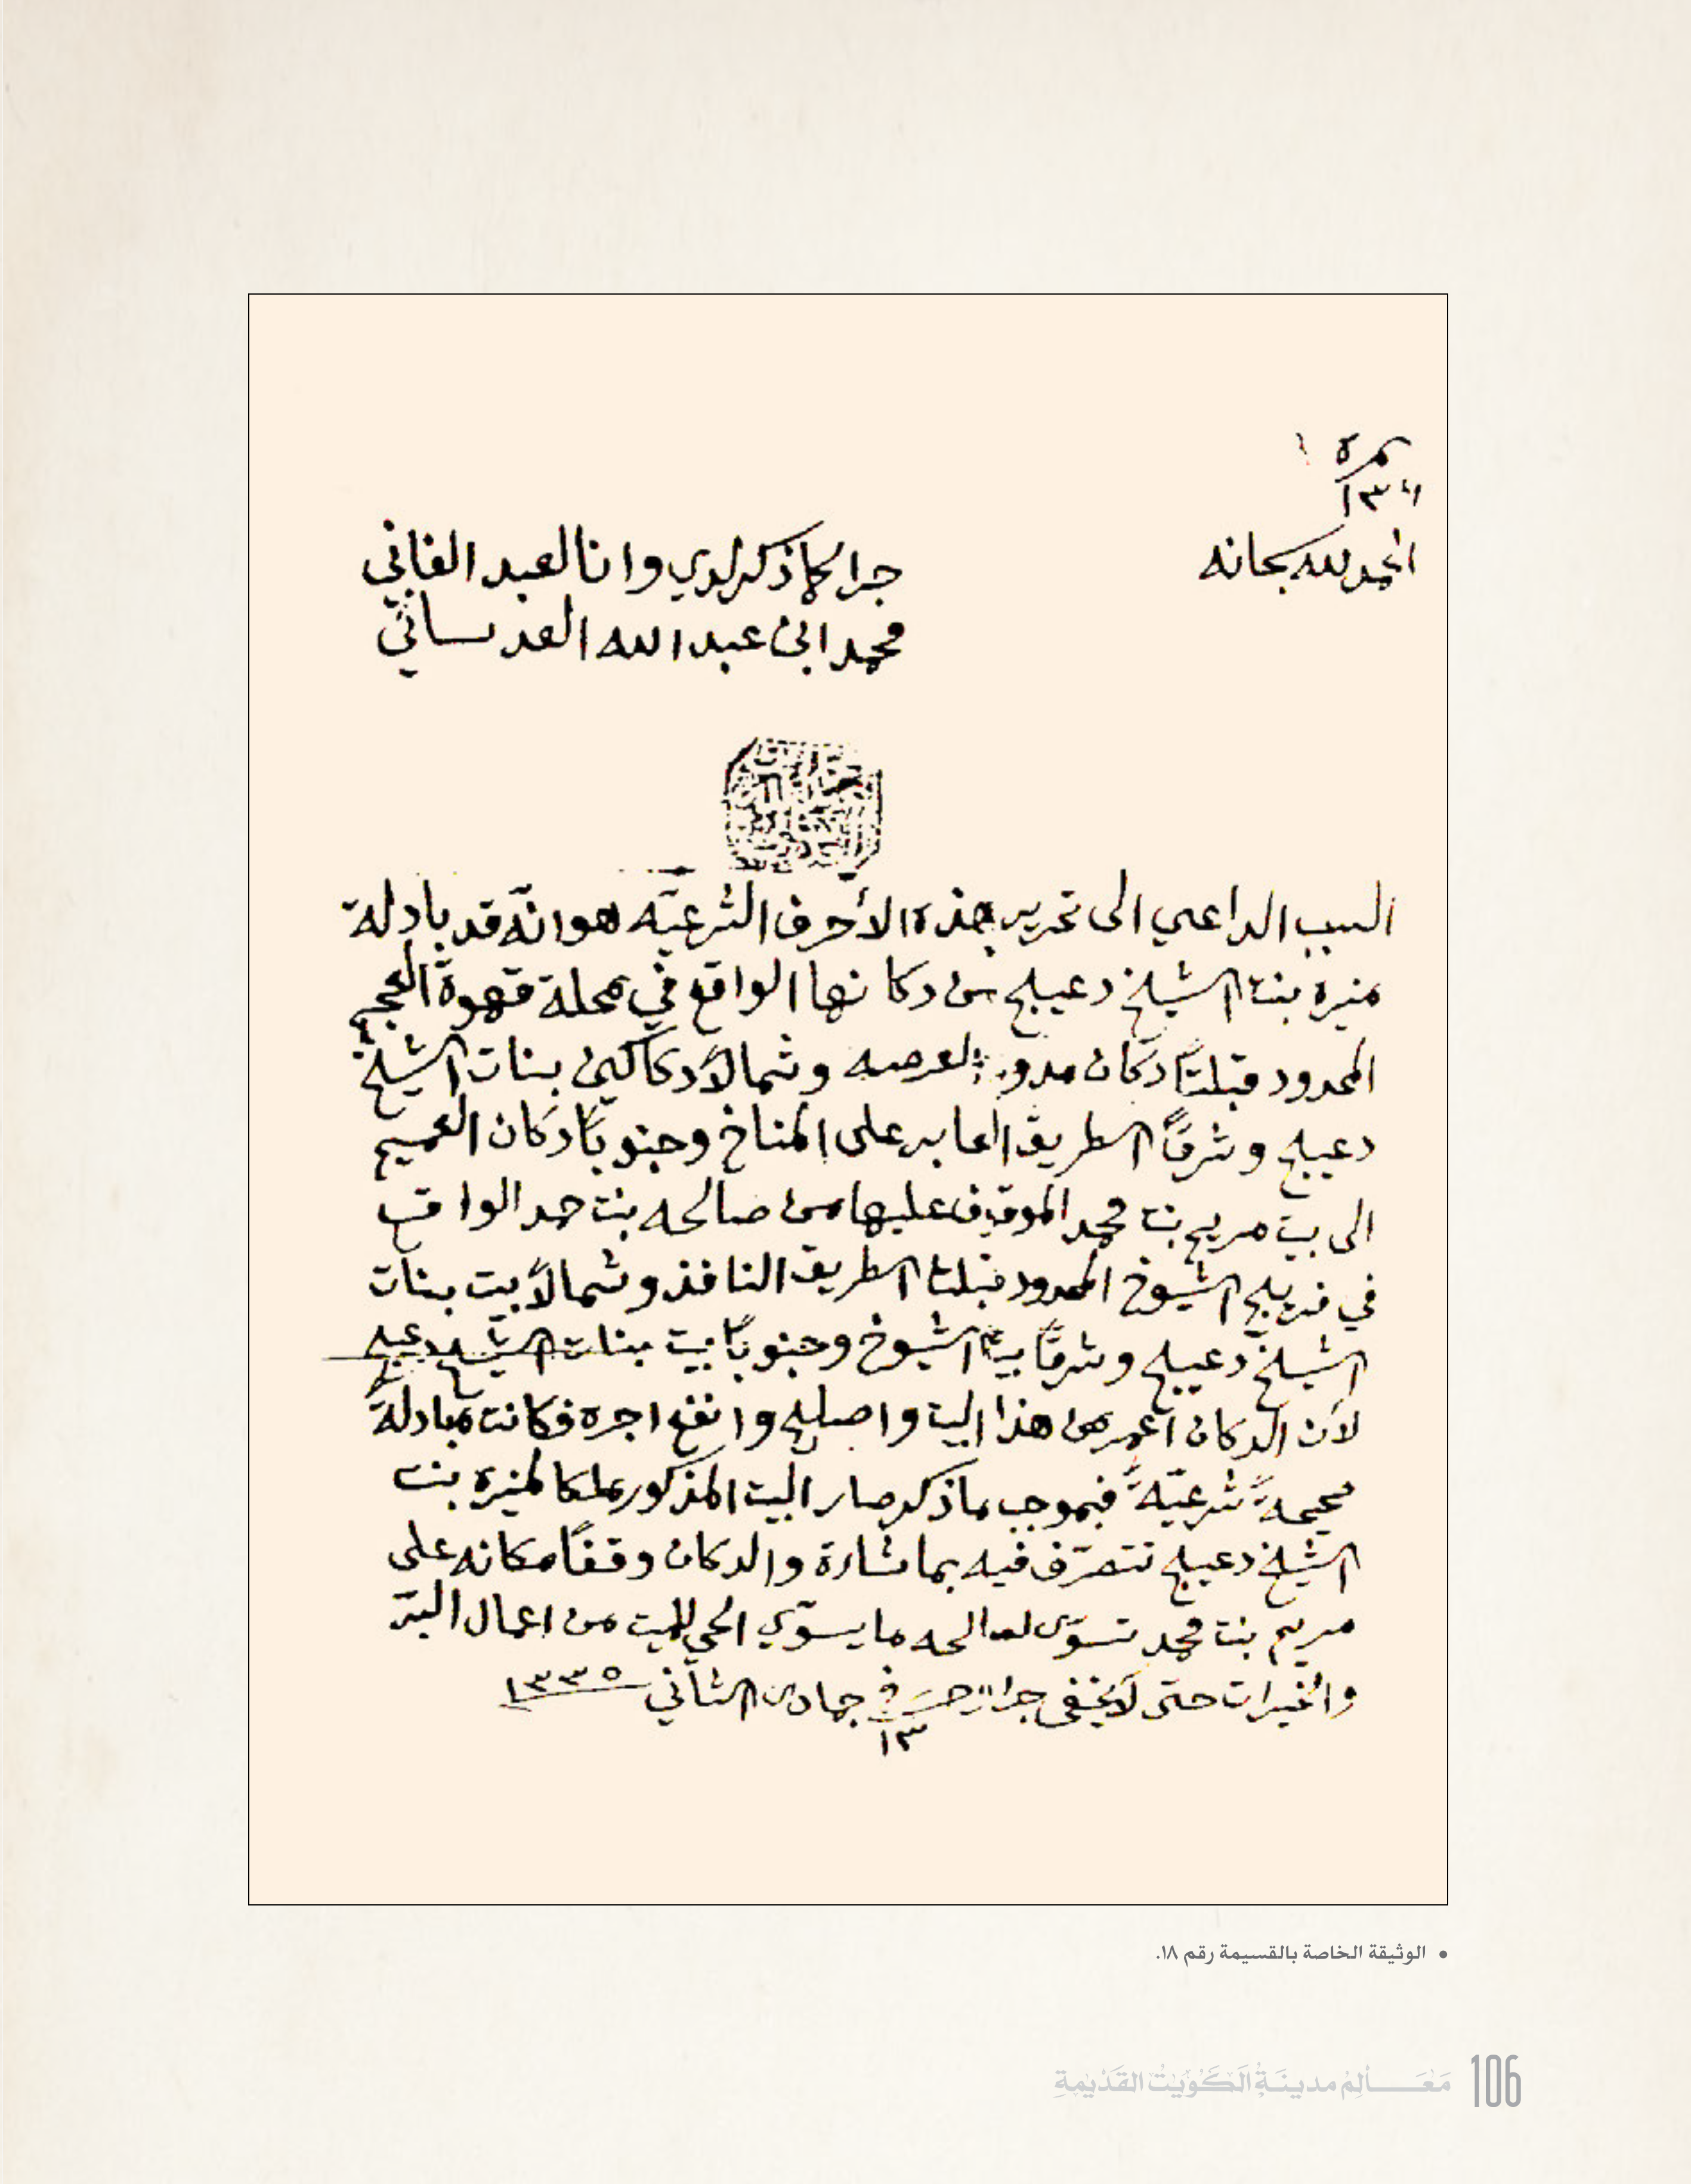 نمرة ١
١٣
الحمد لله سبحانه
جرا كما ذكر لدي وانا العبد الفاني
محمد ابن عبد الله العدساني
السبب الداعي الى تحرير هذه الأحرف الشرعيّه هو انّه قد بادلة
منيره بنت الشيخ دعيج من دكانها الواقع في محلة قهوة العجم
المحدود قبلتاً دكان مدور العرصه وشمالاً دكاكين بنات الشيخ
دعيج وشرقاً الطريق العابر على المناخ وجنوباً دكان العميم
الى بيت مريم بنت محمد الموقوف عليها من صالحه بنت حمد الواقع
في فريج الشيوخ المحدود قبلتا الطريق النافذ وشمالاً بيت بنات
الشيخ دعيج وشرقاً بيت الشيوخ وجنوباً بيت بنات الشيخ دعيج
لأن الدكان اعمر من هذا البيت واصلح وانفع اجره فكانت مبادلةً
صحيحةً شرعيّةً فبموجب ما ذكر صار البيت المذكور ملكا لمنيره بنت
الشيخ دعيج تتصرّف فيه بما شارة والدكان وقفاً مكانه على
مريم بنت محمد تسوّي لصالحه ما يسوّي الحي للميت من اعمال البرّ
والخيرات حتى لا يخفى جرا وحرر في ١٣ جمادى الثاني ١٣٣٥
• الوثيقة الخاصة بالقسيمة رقم ١٨.
مَعَالِمُ مدينَةِ الكُوَيْتِ القَدْيمةِ 106